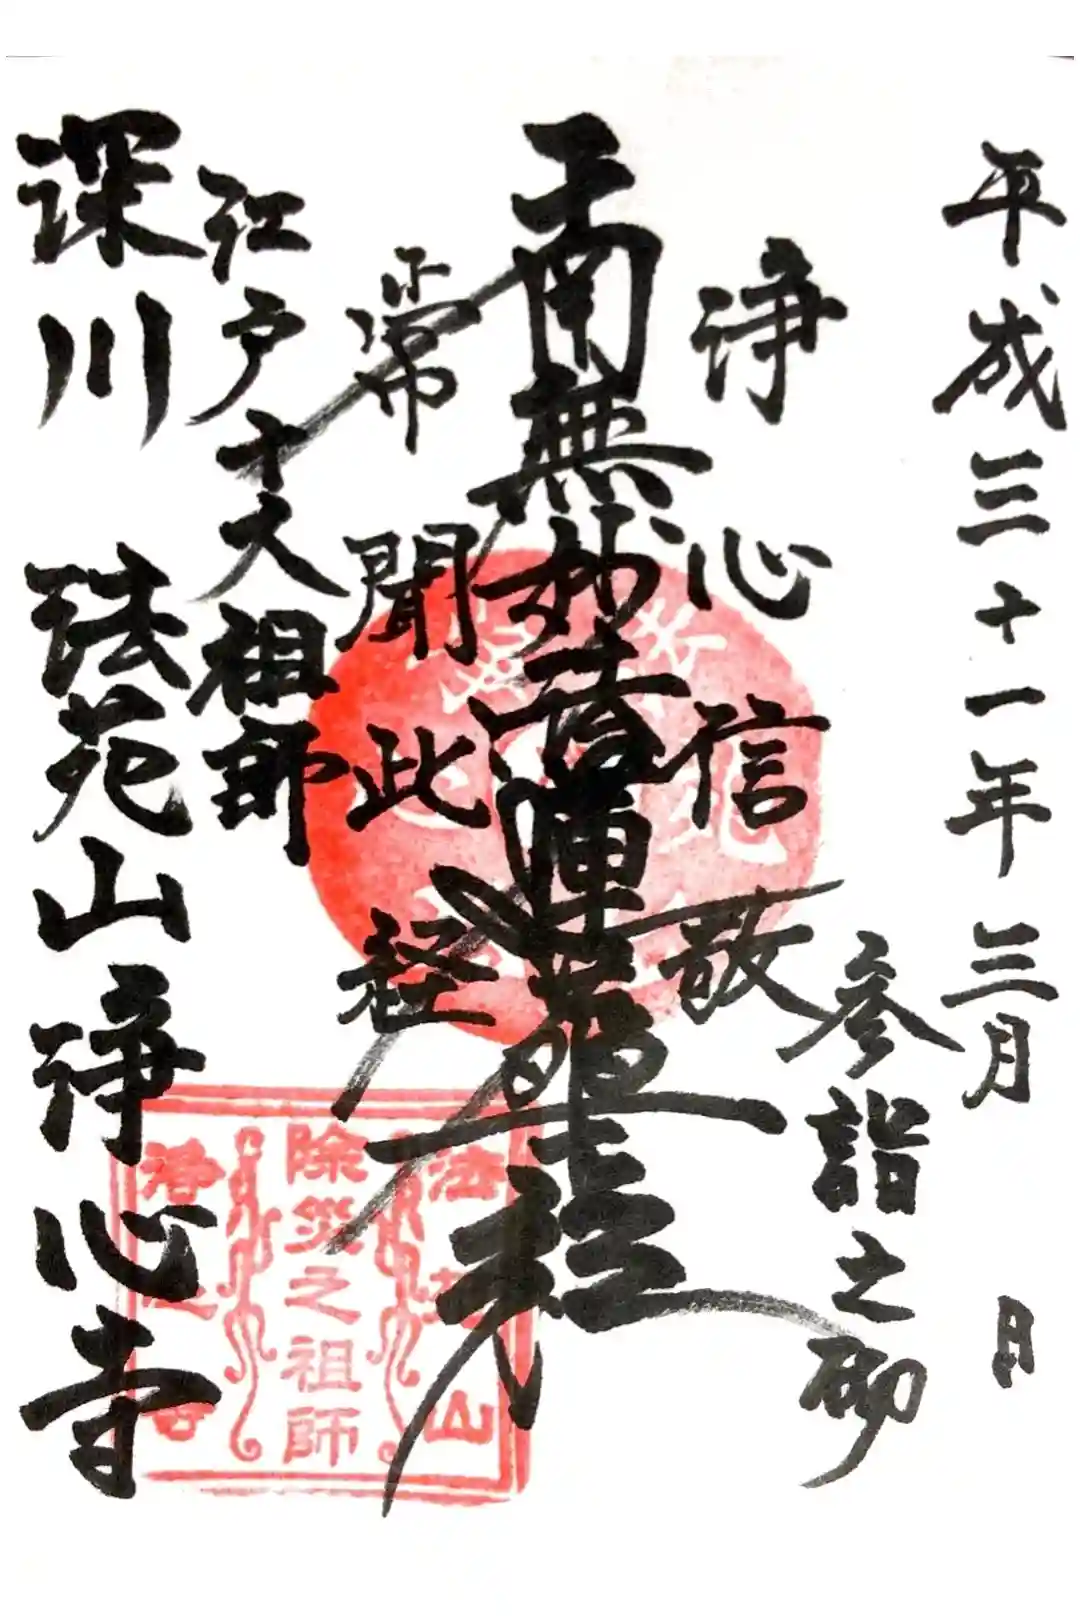 平成三十一年三月 日
参詣之砌
浄心信敬
南無妙法蓮華経
常聞此経
江戸十大祖師
深川 法苑山 浄心寺
法苑山
除災之祖師
浄心寺